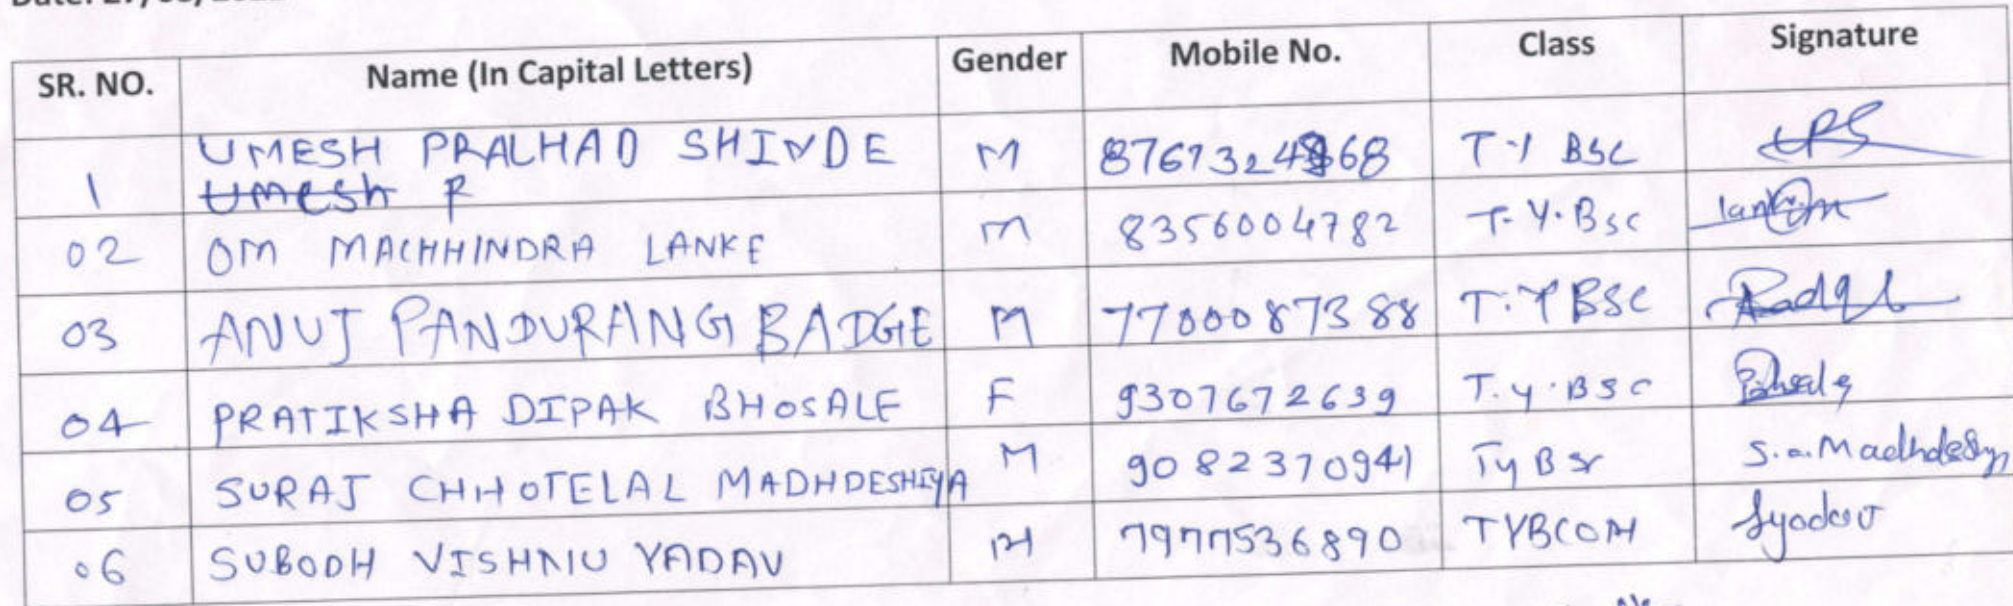 SR. NO. Name (In Capital Letters) Gender Mobile No. Class Signature
1 UMESH PRALHAD SHINDE M T.Y BSC
Umesh P
02 OM MACHHINDRA LANKE M 8356004782 T.Y.Bsc
03 ANUJ PANDURANG BADGE M 7700087388 T.Y BSC
04 PRATIKSHA DIPAK BHOSALE F 9307672639 T.y.BSC
05 SURAJ CHHOTELAL MADHDESHIYA M 9082370941 TyBsc
06 SUBODH VISHNU YADAV M 7977536890 TYBCOM